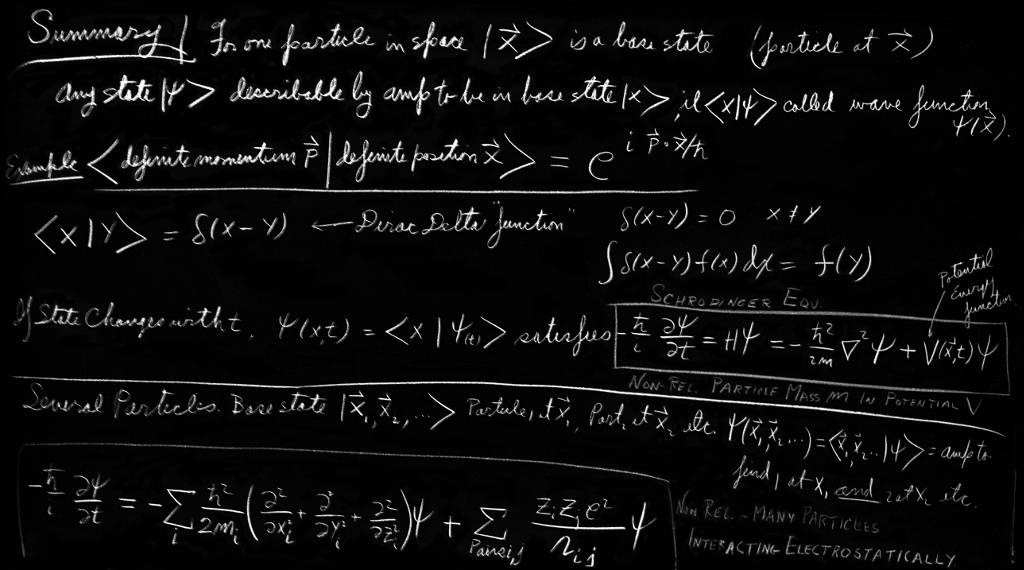 Summary For one particle in space |x⃗> is a base state (particle at x⃗)
Any state |ψ> describable by amp to be in base state |x>, i.e. <x|ψ> called wave function
ψ(x⃗).
Example <definite momentum p⃗ | definite position x⃗> = e^{i p⃗·x⃗/ħ}
<x|y> = δ(x-y) ← Dirac Delta "function" δ(x-y) = 0 x ≠ y
∫δ(x-y) f(x) dx = f(y)
Potential
Energy
function.
SCHRODINGER EQU.
If State Changes with t, ψ(x,t) = <x|ψ(t)> satisfies -ħ/i ∂ψ/∂t = Hψ = -ħ²/2m ∇²ψ + V(x⃗,t)ψ
NON-REL. PARTICLE MASS m IN POTENTIAL V
Several Particles. Base state |x⃗₁, x⃗₂, ...> Particle 1 at x⃗₁, Part. 2 at x⃗₂ etc. ψ(x⃗₁x⃗₂...) = <x⃗₁x⃗₂...|ψ> = amp to
find 1 at x₁ and 2 at x₂ etc.
-ħ/i ∂ψ/∂t = -∑_i ħ²/2m_i (∂²/∂x_i² + ∂²/∂y_i² + ∂²/∂z_i²)ψ + ∑_{Pairs i,j} z_i z_j e²/r_{ij} ψ
NON REL. - MANY PARTICLES
INTERACTING ELECTROSTATICALLY.